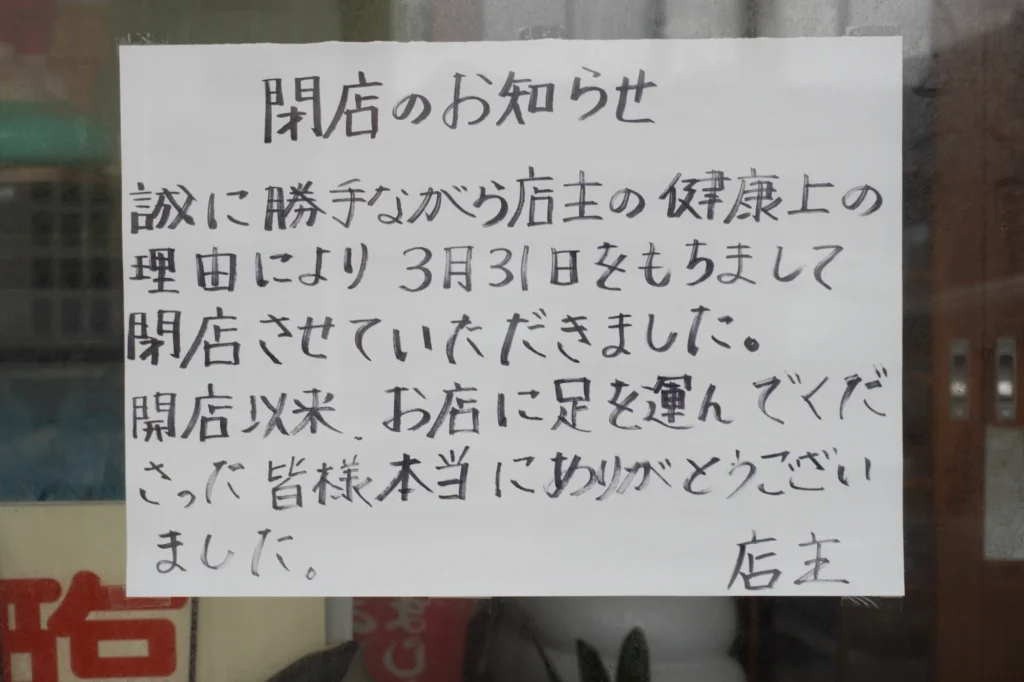 閉店のお知らせ
誠に勝手ながら店主の健康上の
理由により 3月31日をもちまして
閉店させていただきました。
開店以来、お店に足を運んでくだ
さった皆様本当にありがとうござい
ました。
店主